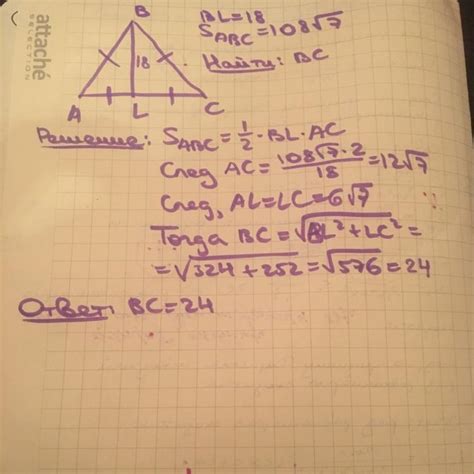 attaché
SELECTION
B
BL=18
S_ABC=108√7
Найти: BC
18
A L C
Решение: S_ABC=1/2·BL·AC
След AC=108√7·2/18=12√7
След, AL=LC=6√7
Тогда BC=√BL²+LC²=
=√324+252=√576=24
Ответ: BC=24